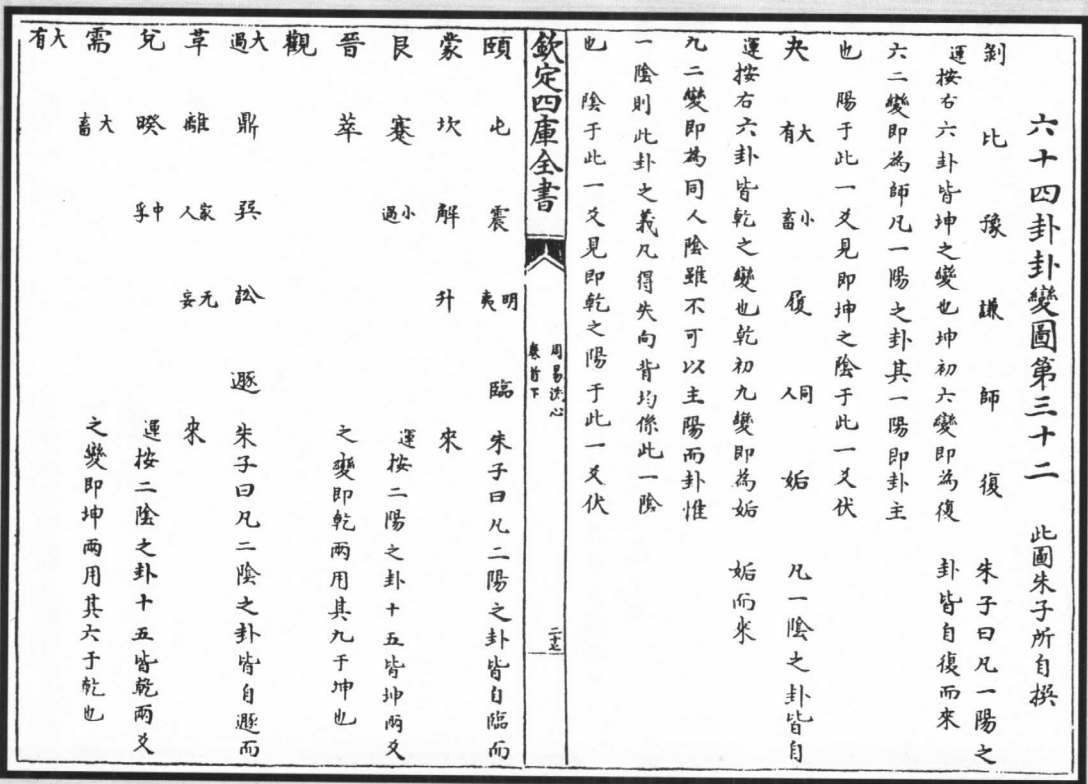 六十四卦卦變圖第三十二　此圖朱子所自撰
剝　比　豫　謙　師　復　朱子曰凡一陽之
卦皆自復而來
運按右六卦皆坤之變也坤初六變即為復
六二變即為師凡一陽之卦其一陽即卦主
也　陽于此一爻見即坤之陰于此一爻伏
夬　大有　小畜　履　同人　姤　凡一陰之卦皆自
姤而來
運按右六卦皆乾之變也乾初九變即為姤
九二變即為同人陰雖不可以主陽而卦惟
一陰則此卦之義凡得失向背均係此一陰
也　陰于此一爻見即乾之陽于此一爻伏
欽定四庫全書
周易洗心
卷首下
二十七
頤　屯　震　明夷　臨　朱子曰凡二陽之卦皆自臨而
蒙　坎　解　升　來
艮　蹇　小過　運按二陽之卦十五皆坤兩爻
晉　萃　之變即乾兩用其九于坤也
觀
大過　鼎　巽　訟　遯　朱子曰凡二陰之卦皆自遯而
革　離　家人　无妄　來
兌　睽　中孚　運按二陰之卦十五皆乾兩爻
需　大畜　之變即坤兩用其六于乾也
大有